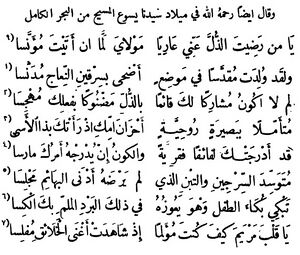 وقال ايضًا رحمهُ الله في ميلاد سيدنا يسوع المسيح من البحر الكامل
يا من رضيتَ الذلَّ عني عاريا مولايَ لمَّا ان أتيتَ مؤَنسا (١)
ولقد وُلدتَ مُقدَّسا في موضعٍ أضحى بسرقين النِعاج مُدنَّسا (٢)
لِم لا اكون مُشاركًا لك قانتًا بالذلِّ مضنوكًا بفعلك مُهجسا (٣)
متأمِّلًا ببصيرةٍ روحيةٍ أحزانَ امِّك اذ رأتك بذا الأسى
قد أدرجتكَ لفائفًا فقريةً والكونُ إن يُدرجهُ أمرك مارسا (٤)
متوسِّد السرجين والتبن الذي لم يرضهُ أدنى البهائم مجلسا (٥)
تبكي بكاءَ الطفلِ وهو يعوزهُ في ذلك البرد الملمِّ بك الكسا (٦)
يا قلبَ مريمَ كيف كنتَ مولَّها إذ شاهدتْ أغنى الخلائق مُفلسا (٧)